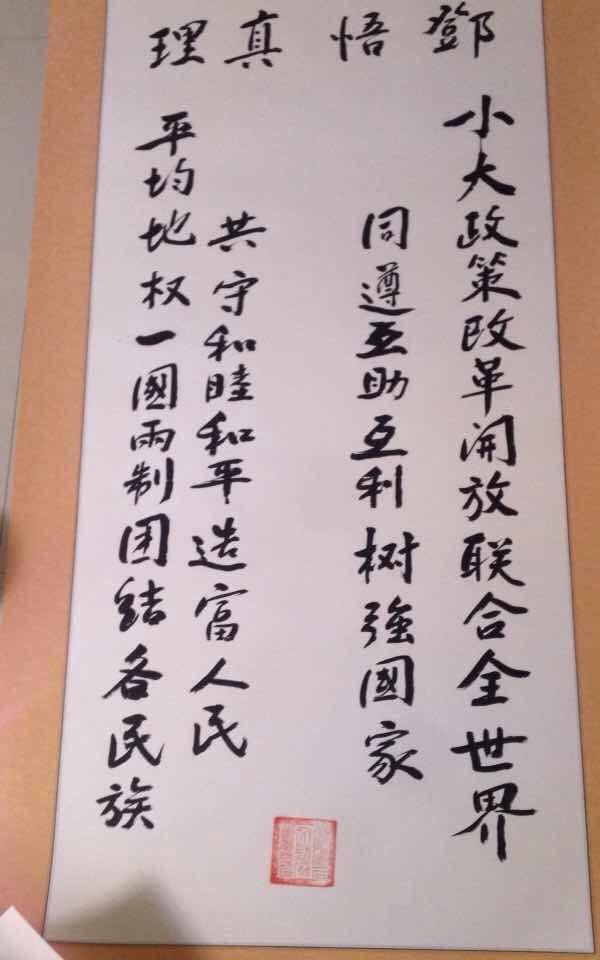 鄧悟真理
小大政策改革開放联合全世界
同遵互助互利树強國家
共守和睦和平造富人民
平均地权一國兩制团結各民族